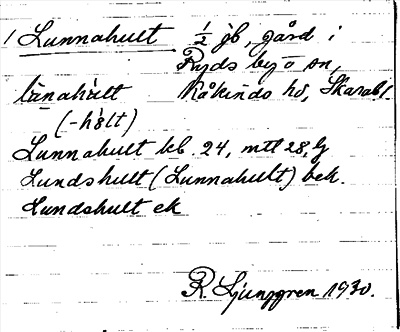 1 Lunnahult ½ jb, gård i
Ryds by o sn,
lănahàlt Kåkinds hd, Skarab. l.
(-hàlt)
Lunnahult kb. 24, mtl 28, G
Lundshult (Lunnahult) bek.
Lundshult ek
R. Ljunggren 1930.